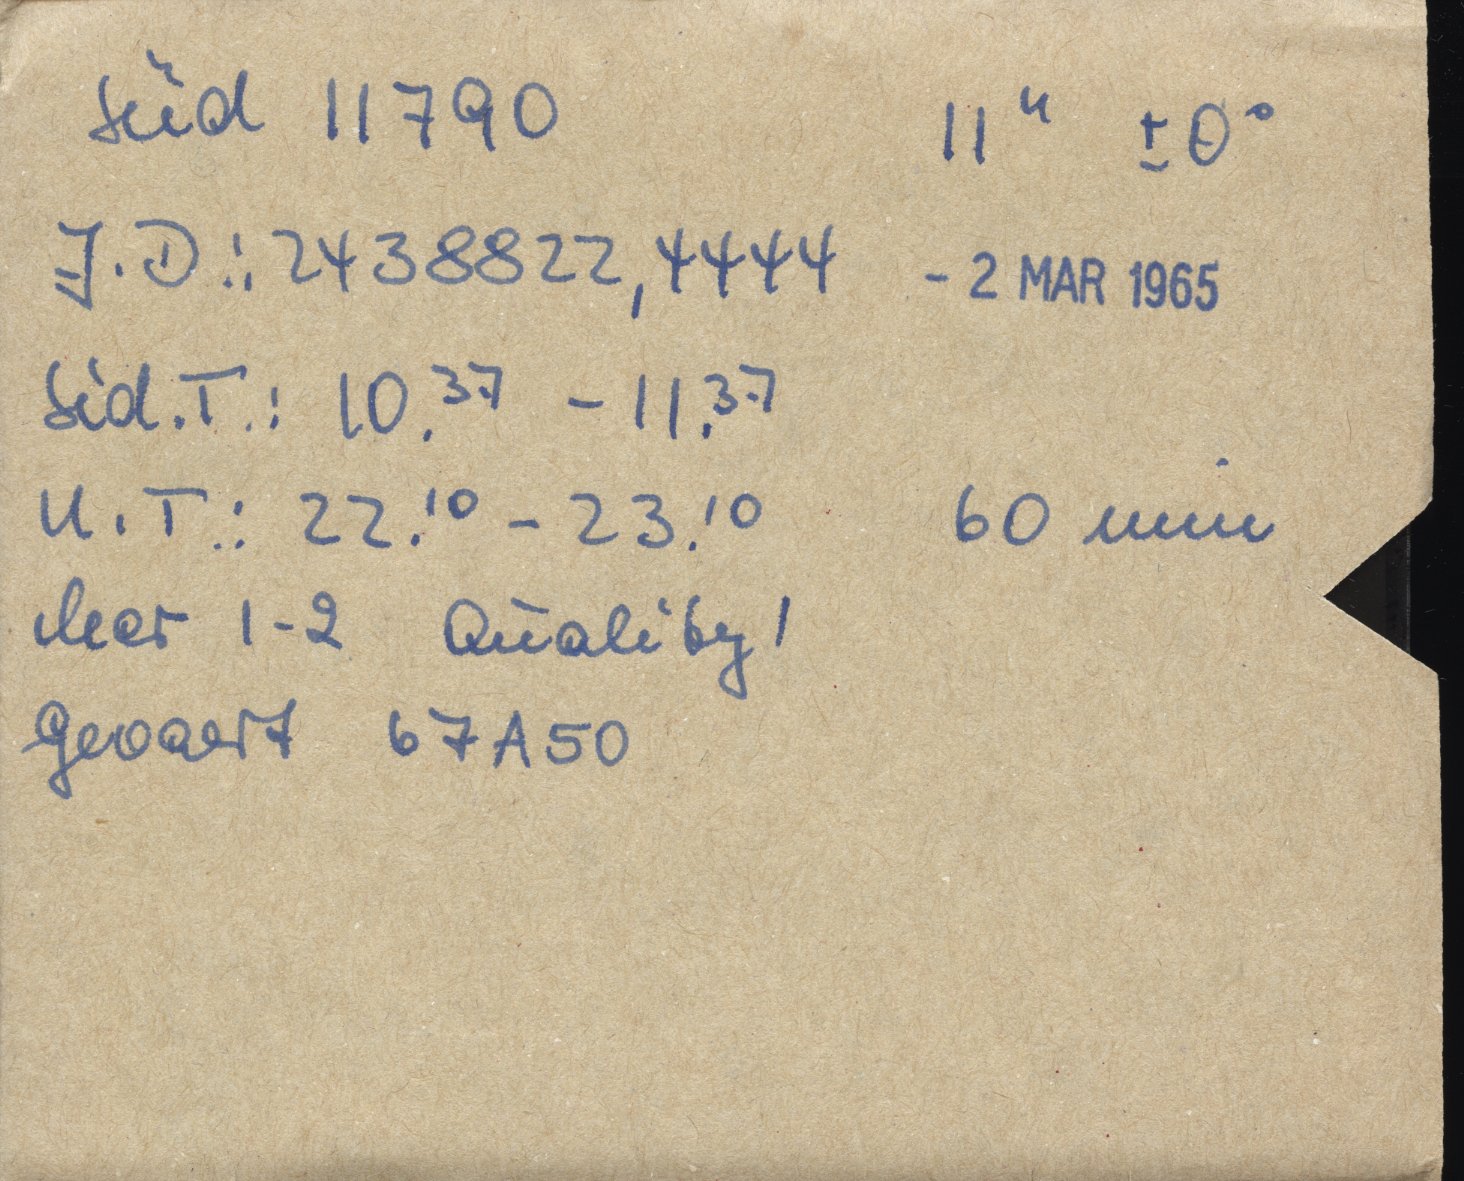 Süd 11790 11ʰ ±0°
J.D.: 2438822,4444 - 2 MAR 1965
Sid.T.: 10.³⁷ - 11.³⁷
U.T.: 22.¹⁰ - 23.¹⁰ 60 min
clear 1-2 Quality!
Gevaert 67A50